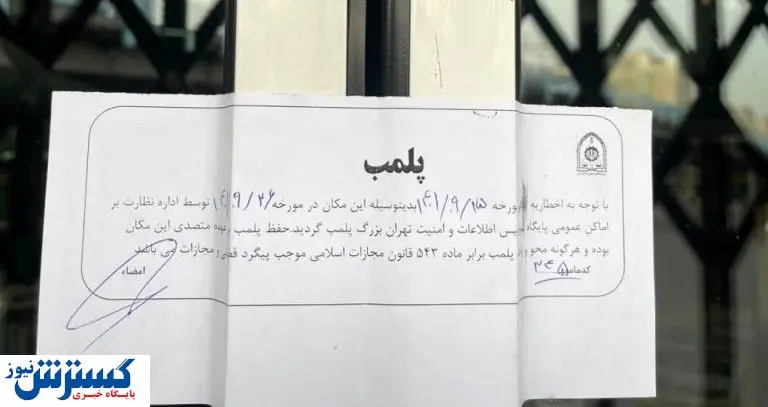 پلمب
با توجه به اخطاریه مورخه ۱۴۰۱/۹/۲۵ بدینوسیله این مکان در مورخه ۱۴۰۱/۹/۲۶ توسط اداره نظارت بر
اماکن عمومی پایگاه پلیس اطلاعات و امنیت تهران بزرگ پلمب گردید.حفظ پلمب بعهده متصدی این مکان
بوده و هرگونه محو پلمب برابر ماده ۵۴۳ قانون مجازات اسلامی موجب پیگرد و مجازات می باشد
کدمامور ۲۴۵
امضاء
گسترش نیوز
پایگاه خبری